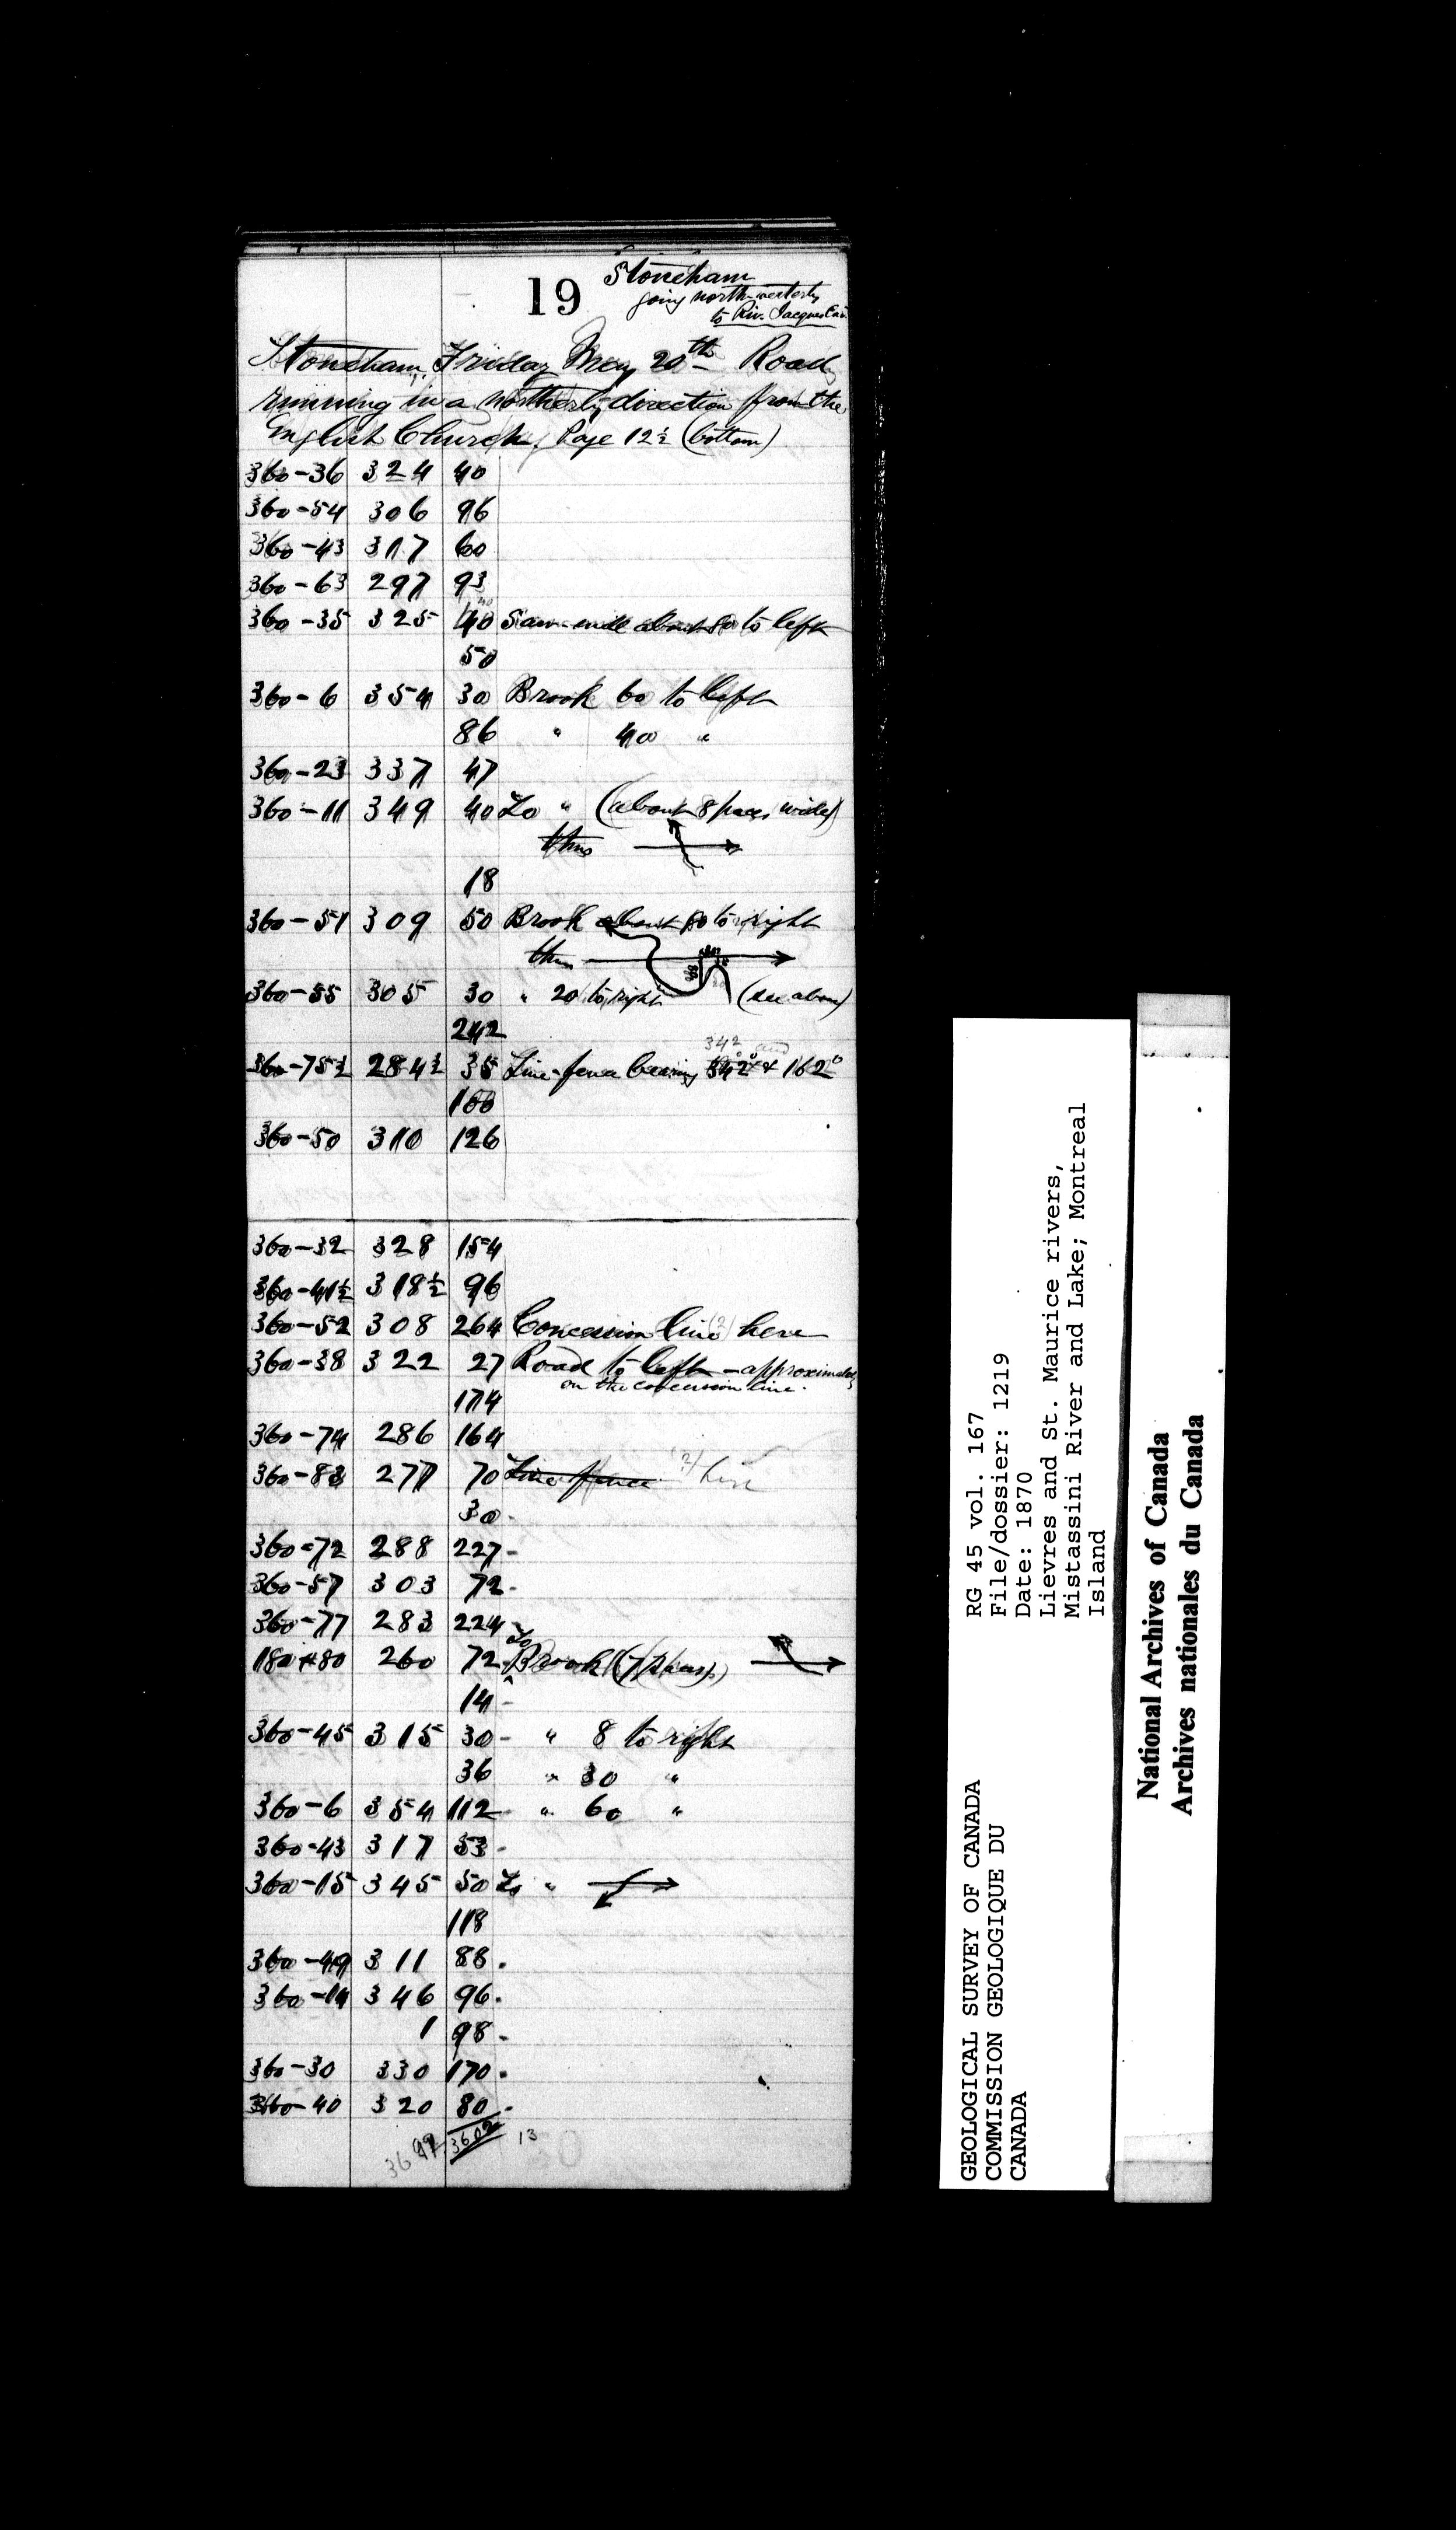 19
Stoneham
going north-westerly
to Riv. Jacques Car.
Stoneham, Friday May 20th – Road
running in a northerly direction from the
English Church. Page 12½ (bottom)
360-36 324 40
360-54 306 96
360-43 317 60
360-63 297 93
360-35 325 40 Saw-mill about 80 to left
50
360-6 354 30 Brook 60 to left
86 " 40 "
360-23 337 47
360-11 349 40 To " (about 8 paces wide)
thus
18
360-51 309 50 Brook about 80 to right
thus
360-55 305 30 " 20 to right (see above)
242
342 and
360-75½ 284½ 35 Line-fence bearing 342° & 162°
100
360-50 310 126
360-32 328 154
360-41½ 318½ 96
360-52 308 264 Concession line (?) here
360-38 322 27 Road to left – approximately
on the concession line.
174
360-74 286 164
360-83 277 70 Line fence (?) here
30-
360-72 288 227-
360-57 303 72-
360-77 283 224-
180+80 260 72- To Brook (7 paces)
14-
360-45 315 30- " 8 to right
36 " 30 "
360-6 354 112- " 60 "
360-43 317 53-
360-15 345 50 To "
118
360-49 311 88.
360-14 346 96.
1 98-
360-30 330 170.
360-40 320 80-
3692 3602 13
GEOLOGICAL SURVEY OF CANADA
COMMISSION GEOLOGIQUE DU
CANADA
RG 45 vol. 167
File/dossier: 1219
Date: 1870
Lievres and St. Maurice rivers,
Mistassini River and Lake; Montreal
Island
National Archives of Canada
Archives nationales du Canada